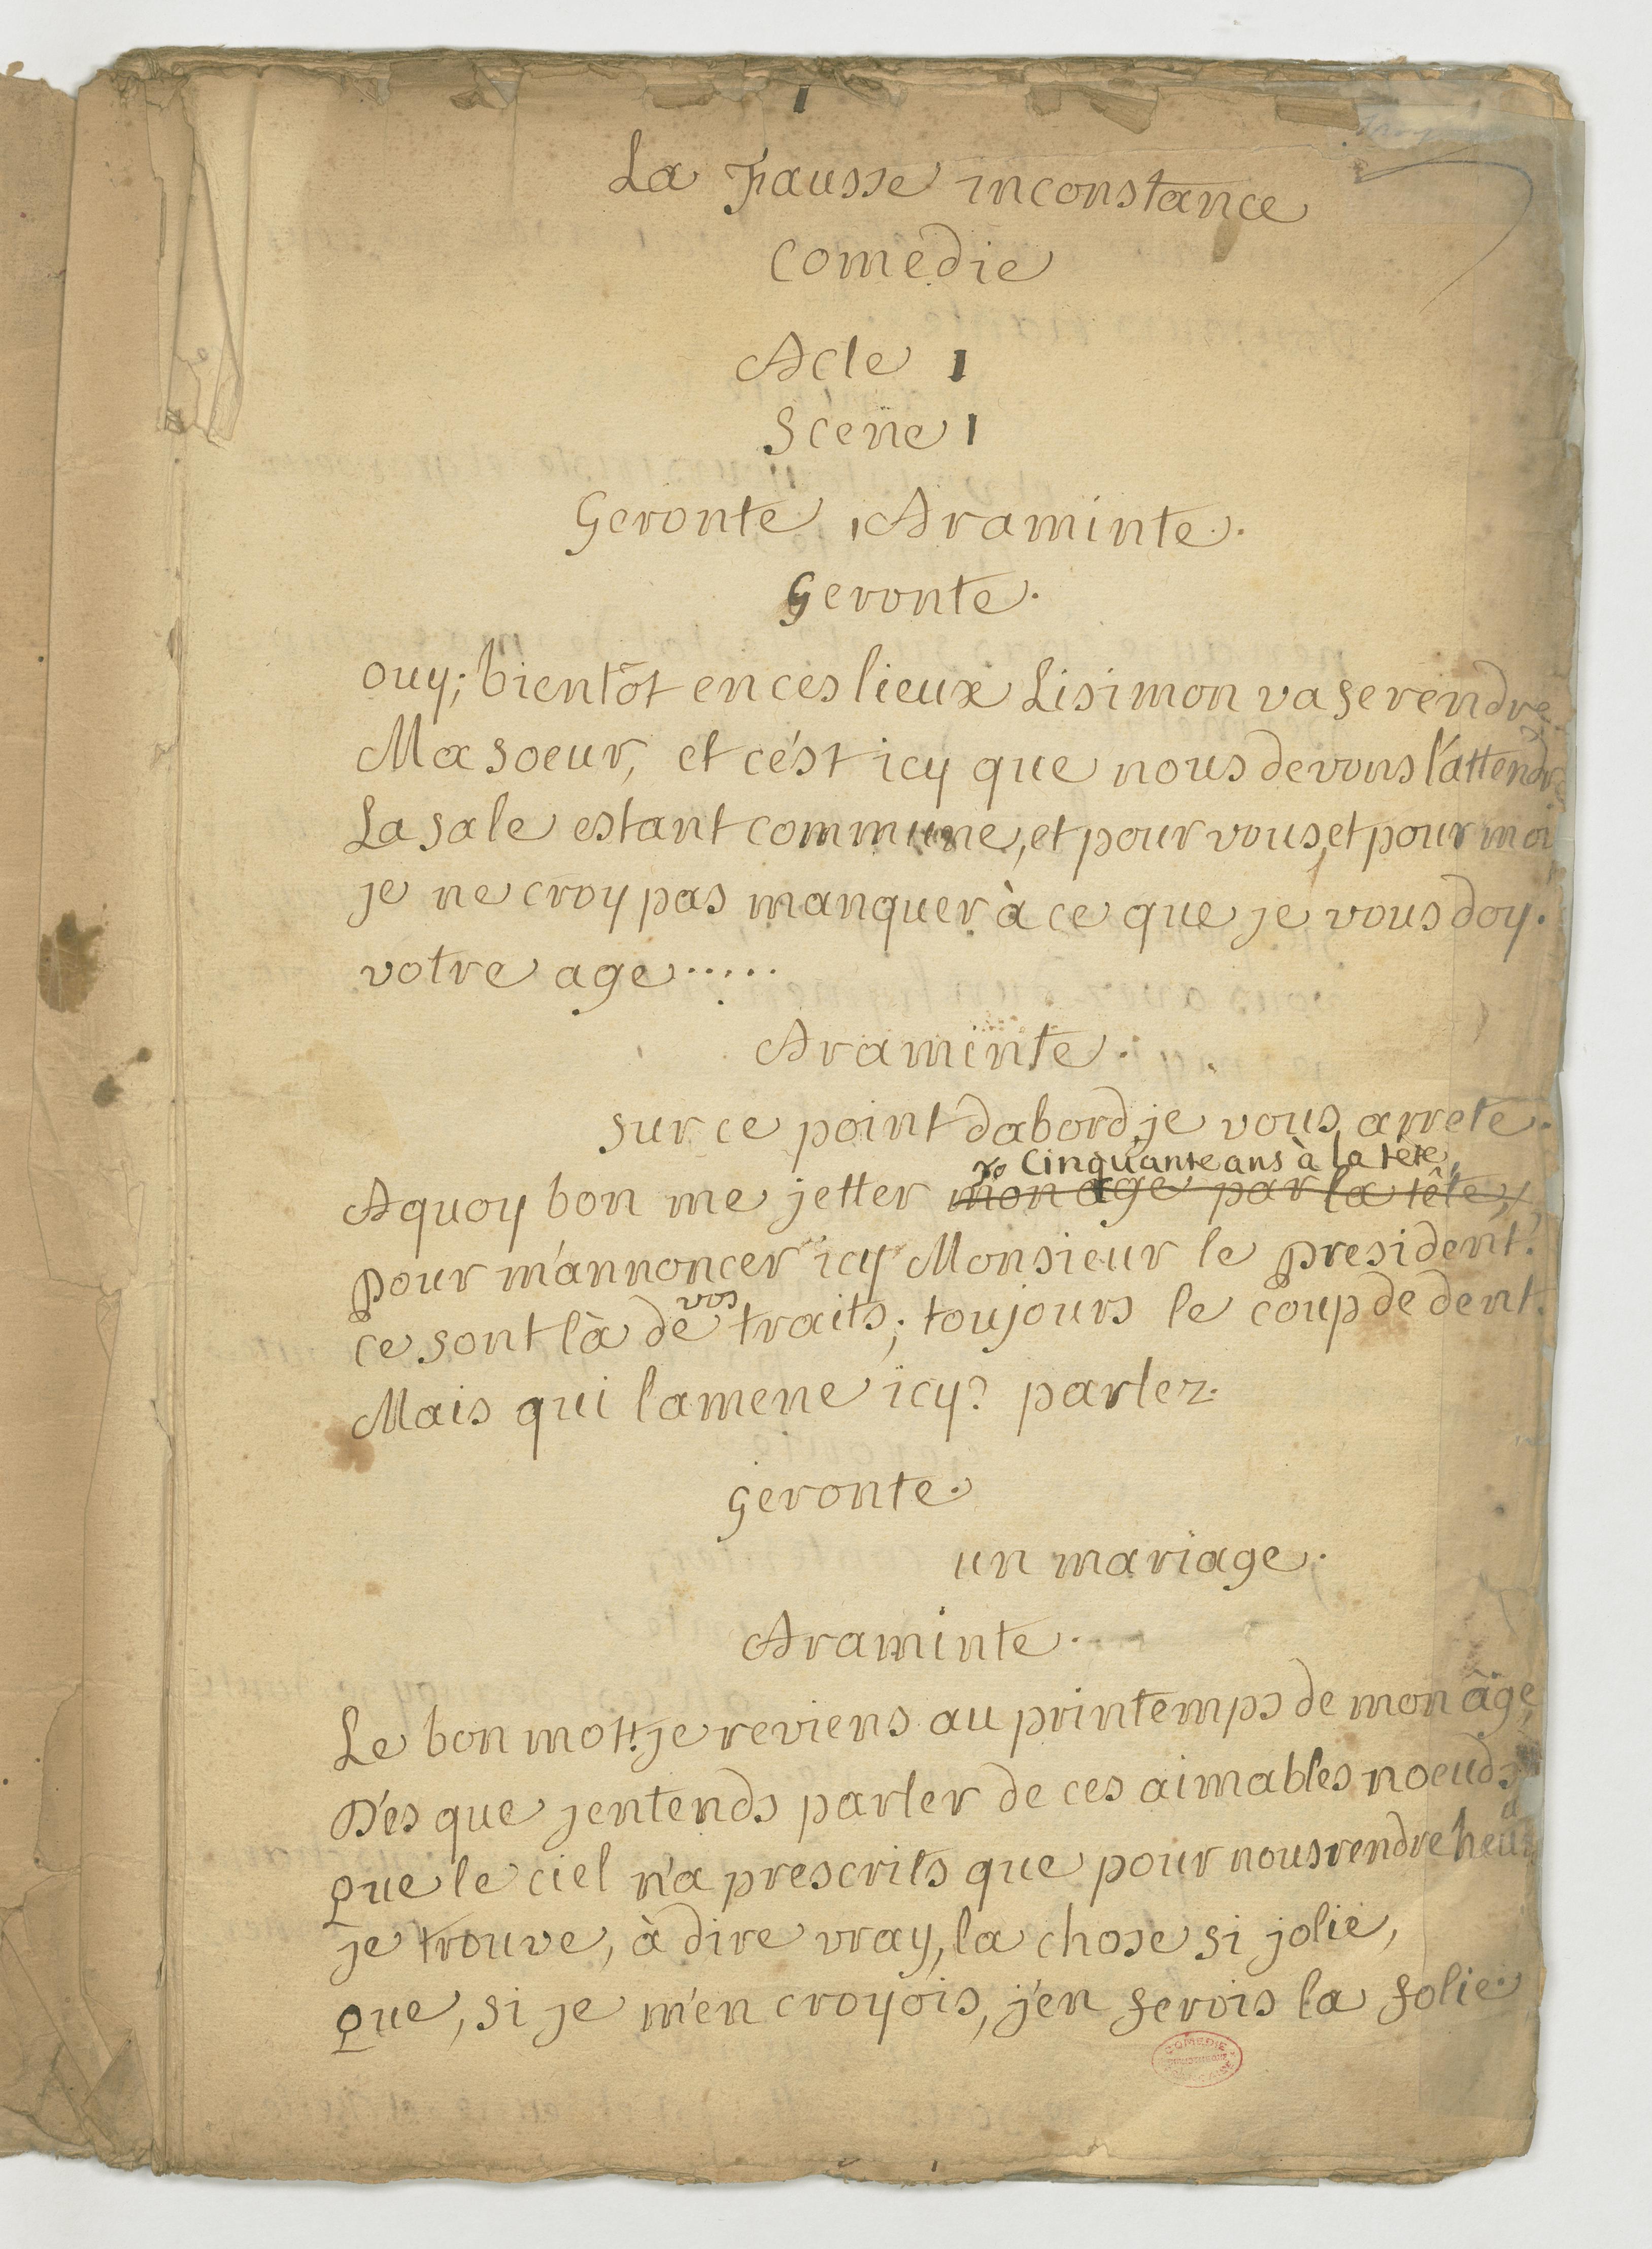 1
La Fausse inconstance
Comedie
Acte 1
Scene 1
Geronte, Araminte.
Geronte.
ouy; bientôt en ces lieux Lisimon va se rendre
Ma soeur, et c'est icy que nous devons l'attendre
La sale estant commune, et pour vous, et pour moi
je ne croy pas manquer à ce que je vous doy.
votre age.....
Araminte.
sur ce point dabord, je vous arrete.
Cinquante ans à la tête,
A quoy bon me jetter mon age par la tête,
pour m'annoncer icy Monsieur le president?
vos
ce sont là de traits; toujours le coup de dent.
Mais qui l'amene icy? parlez.
geronte.
un mariage.
Araminte.
Le bon mot! je reviens au printemps de mon âge,
Dés que jentends parler de ces aimables noeuds
Que le ciel n'a prescrits que pour nous rendre
je trouve, à dire vray, la chose si jolie,
Que, si je m'en croyois, j'en ferois la folie.
COMEDIE